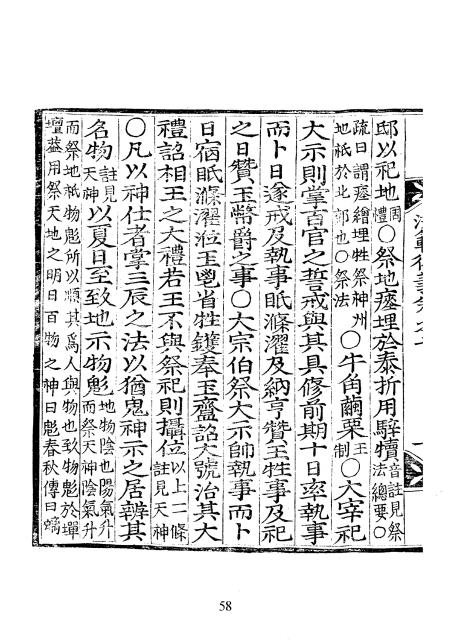 邸以祀地周禮〇祭地瘞埋於泰折用騂犢音註見祭法總要〇
疏曰謂瘞繒埋牲祭神州地祇於北郊也〇祭法〇牛角繭栗王制〇大宰祀
大示則掌百官之誓戒與其具脩前期十日率執事
而卜日遂戒及執事眡滌濯及納亨贊王牲事及祀
之日贊玉幣爵之事〇大宗伯祭大示帥執事而卜
日宿眡滌濯涖玉鬯省牲鑊奉玉齍詔大號治其大
禮詔相王之大禮若王不與祭祀則攝位以上二條註見天神
〇凡以神仕者掌三辰之法以猶鬼神示之居辨其
名物註見天神以夏日至致地示物鬽地物陰也陽氣升而祭天神陰氣升
而祭地祇物鬽所以順其爲人與物也致物鬽於墠
壇蓋用祭天地之明日百物之神曰鬽春秋傳曰螭
58